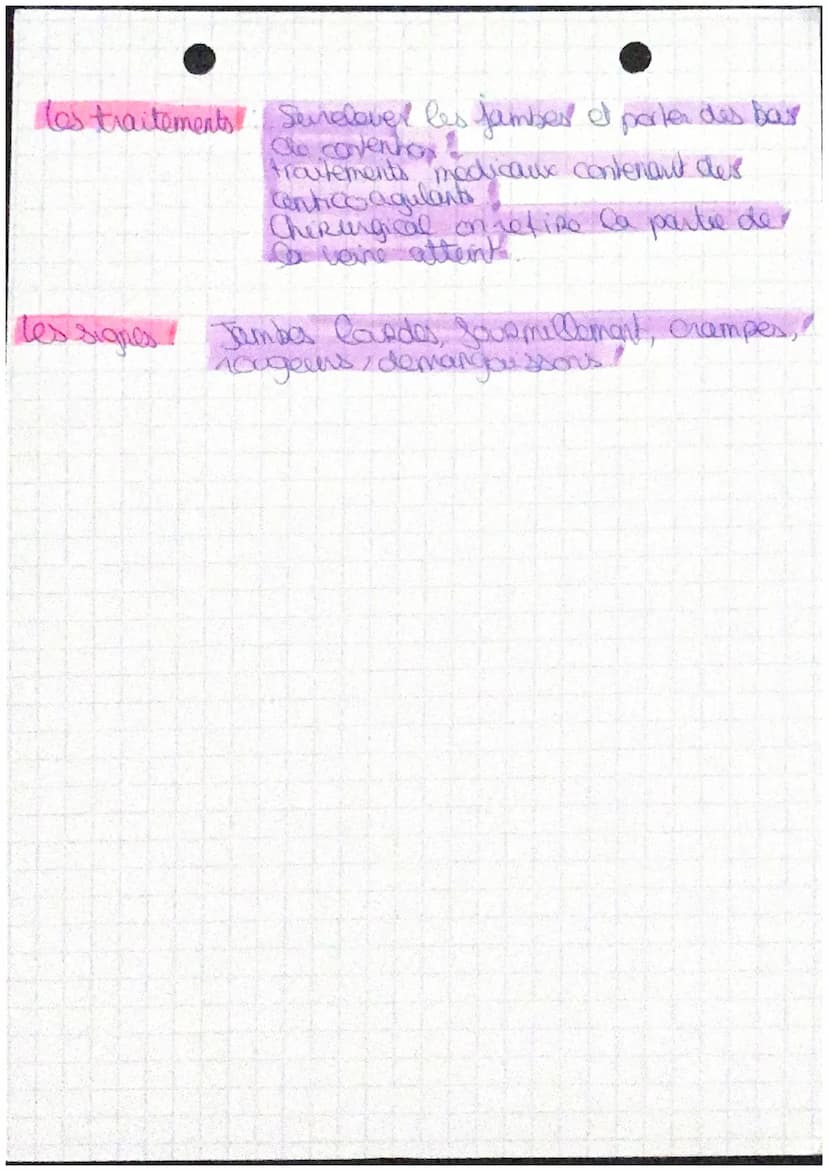 les traitements : Surelever les jambes et porter des bas
de contention
traitements medicaux contenant des
anticoagulants
Chirurgical on retire la partie de
la veine atteint.
les signes Jambes lourdes, fourmillement, crampes,
rougeurs, demangeaissons